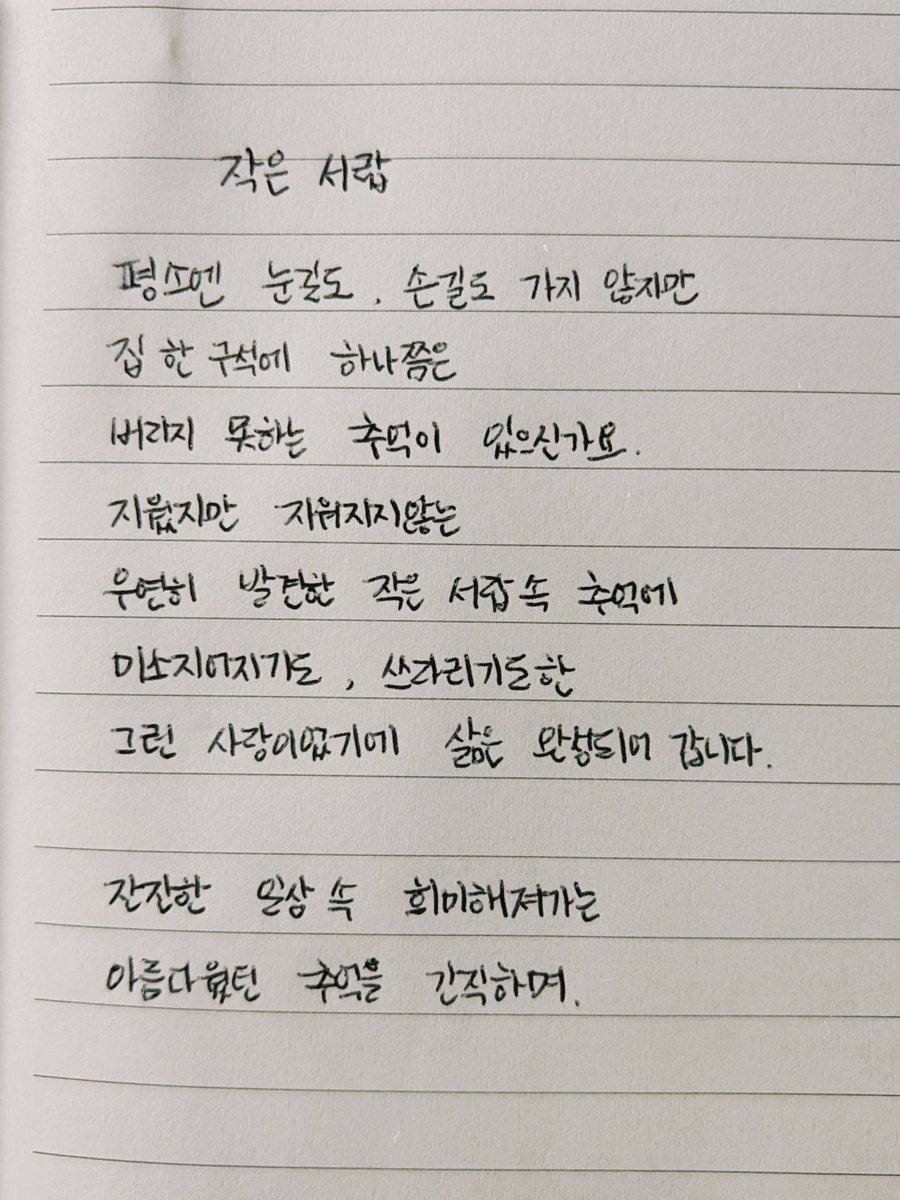 작은 서랍
평소엔 눈길도, 손길도 가지 않지만
집 한 구석에 하나쯤은
버리지 못하는 추억이 있으신가요.
지웠지만 지워지지않는
우연히 발견한 작은 서랍 속 추억에
미소지어지기도, 쓰라리기도한
그런 사랑이었기에 삶은 완성되어 갑니다.
잔잔한 일상 속 희미해져가는
아름다웠던 추억을 간직하며.